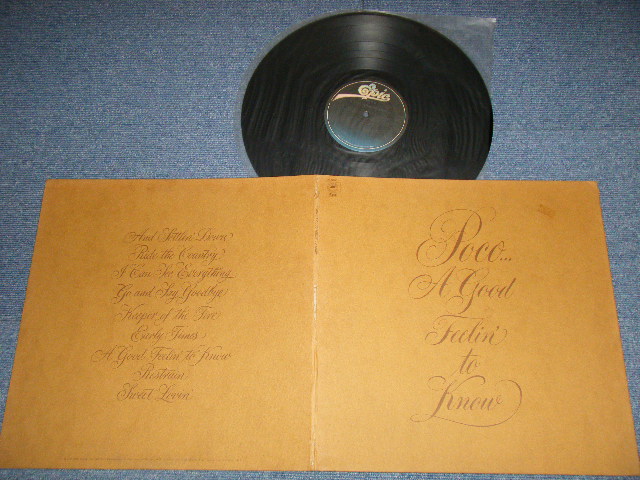 Epic
And Settlin' Down
Ride the Country
I Can See Everything
Go and Say Goodbye
Keeper of the Fire
Early Times
A Good Feelin' to Know
Restrain
Sweet Lovin'
Poco...
A Good
Feelin'
to
Know